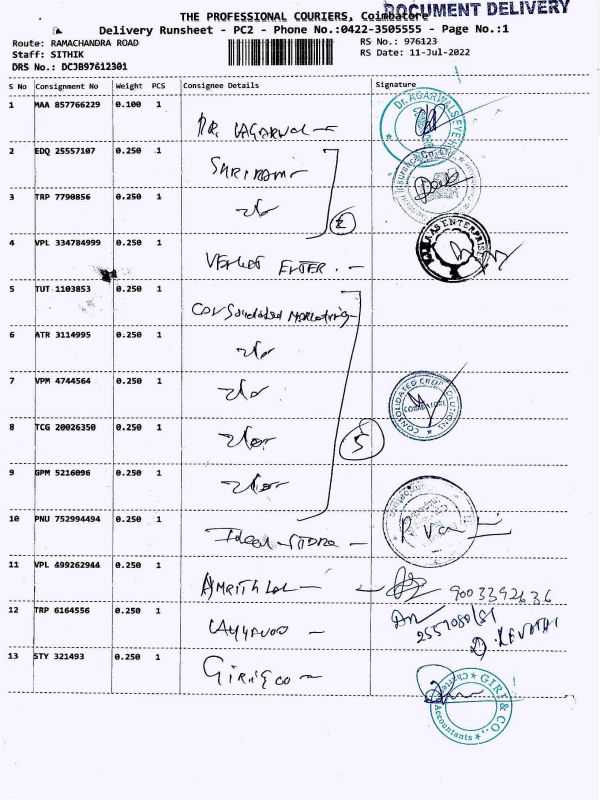 DOCUMENT DELIVERY
THE PROFESSIONAL COURIERS, Coimbatore
Delivery Runsheet - PC2 - Phone No.:0422-3505555 - Page No.:1
Route: RAMACHANDRA ROAD
RS No.: 976123
Staff: SITHIK
RS Date: 11-Jul-2022
DRS No.: DCJB97612301
S No Consignment No Weight PCS Consignee Details Signature
1 MAA 857766229 0.100 1
DR. AGARWAL
Dr. AGARWALS EYE
2 EDQ 25557107 0.250 1
SHRIRAM
Insurance Co.
3 TRP 7790856 0.250 1
2
4 VPL 334784999 0.250 1
ENTER.
ENTERPRISES
5 TUT 1103853 0.250 1
Consolidated Marketing
6 ATR 3114995 0.250 1
7 VPM 4744564 0.250 1
CONSOLIDATED CROP SOLUTIONS
COIMBATORE
8 TCG 20026350 0.250 1
5
9 GPM 5216096 0.250 1
10 PNU 752994494 0.250 1
Ideal STORE
11 VPL 499262944 0.250 1
AMRITH LAL
9003392636
12 TRP 6164556 0.250 1
REVATHI
13 STY 321493 0.250 1
GIRI & CO
GIRI & CO
Chartered Accountants